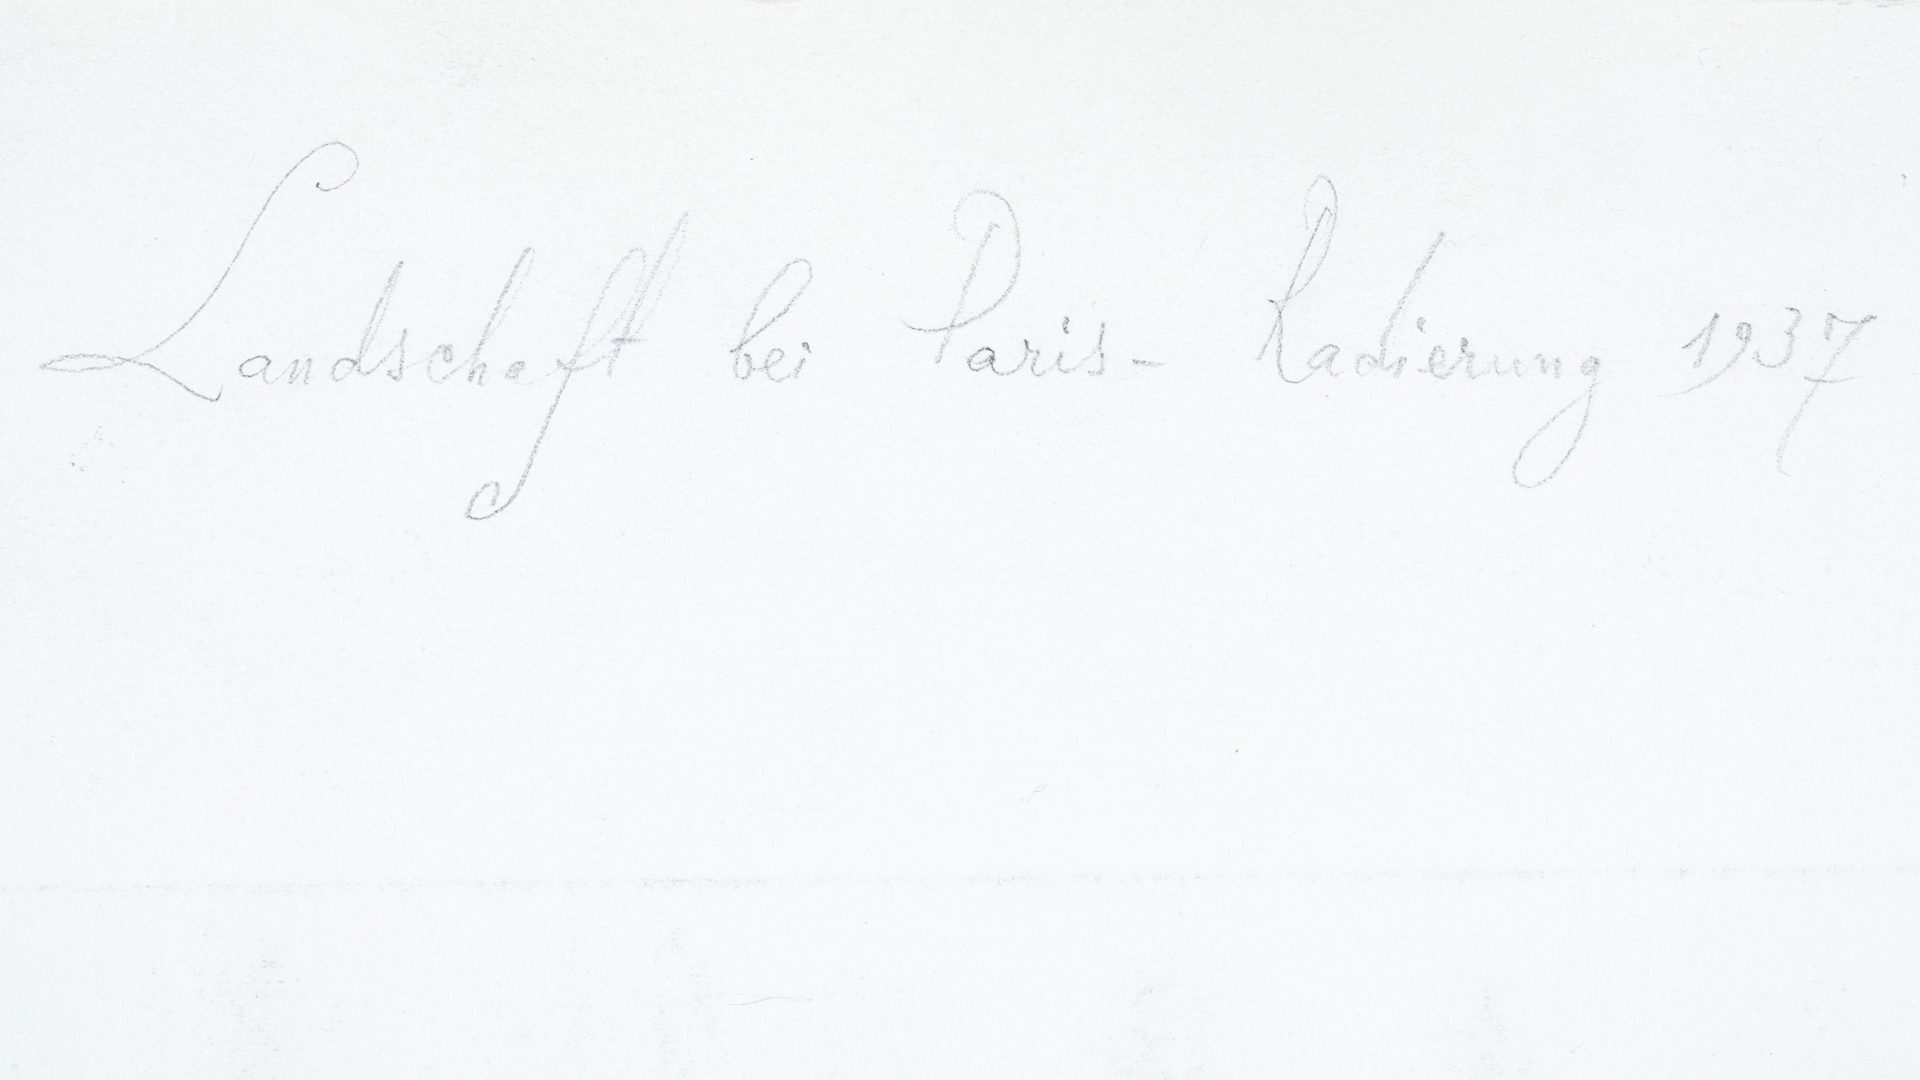 Landschaft bei Paris- Radierung 1937